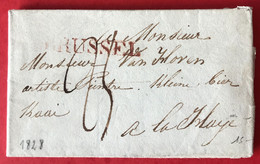 a Monsieur
BRUSSEL
Monsieur Van Hoven
artiste Peintre Kleine Bier
Kaai
a la Haye
1828